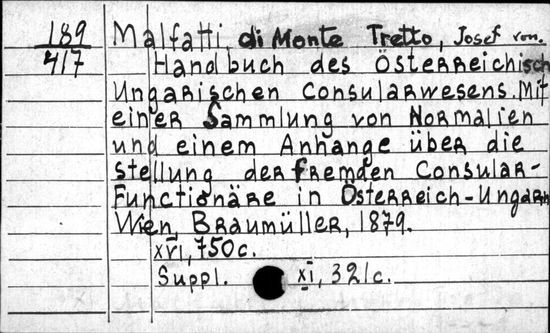 189
417
Malfatti, di Monte Tretto, Josef von.
Handbuch des Österreichisch
Ungarischen Consularwesens. Mit
einer Sammlung von Normalien
und einem Anhange über die
stellung der fremden Consular-
Functionäre in Österreich-Ungarn
Wien, Braumüller, 1879.
XVI, 750c.
Suppl. XI, 321c.